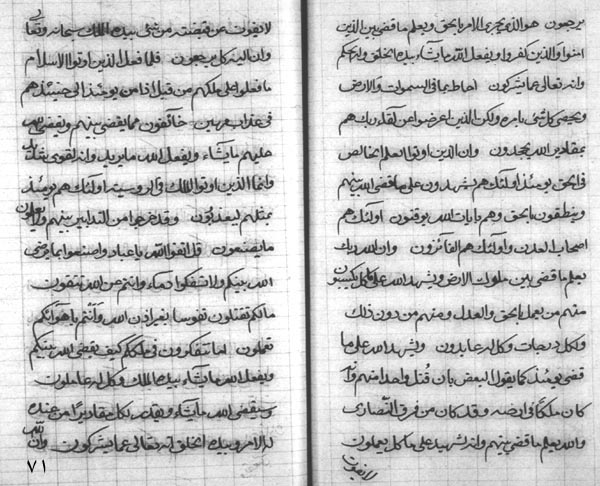 يرجعون هو الذي يجري الامر بالحق ويعلم ما قضي بين الذين
امنوا والذين كفروا ويفعل الله ما يشاء بيده الخلق واليه يحكم
وانه تعالى عما يشركون احاط بما في السموات والارض
ويحصي كل شيء بامره ولكن الذين اعرضوا عن لقاء ربك هم
بمقادير الله يجحدون وان الذين اوتوا العلم الخالص
في الحق يومئذ اولئك هم يشهدون على ما قضى الله بينهم
وينطقون بالحق وهم بايات الله يوقنون اولئك هم
اصحاب العدن واولئك هم الفائزون وان الله ربك
يعلم ما قضي بين ملوك الارض ويشهد الله على ما كل يكسبون
منهم من يعمل بالحق والعدل ومنهم من دون ذلك
ولكل درجات وكل له عابدون ويشهد الله على ما
قضي يومئذ كما يقول البعض بان قتل واحد منهم وانه
كان ملكا في ارضه وقد كان من فرق النصارى
والله يعلم ما قضي بينهم وانه لشهيد على ما كل يعملون
لا يفوت
لا يفوت عن قبضته من شيء بيده الملك سبحانه وتعالى
وان اليه كل يرجعون فلما فعل الذين اوتوا الاسلام
ما فعلوا على ملكهم من قبل اذا من يومئذ الى حينئذ هم
في عذاب مهين خائفون مما يقضي بينهم ويقضي الله
عليهم ما يشاء ويفعل الله ما يريد وانه لقوي شديد
وانما الذين اوتوا الملك في الروسية اولئك هم يومئذ
بمثلهم يعذبون وقد خرجوا من التدابير بينهم ولا يعلمون
ما يصنعون قل اتقوا الله يا عباد واصنعوا بما رضي
الله بينكم ولا تسفكوا دماء وانتم من الله تتقون
ما لكم تقتلون نفوسا بغير اذن الله وانتم باهوائكم
تعملون اما تتفكرون في ملككم كيف يقضي الله بينكم
ويفعل الله ما يشاء بيده الملك وكل له عاملون
وسيقضي الله ما يشاء ويقدر لكل مقاديرا من عنده
له الامر وبيده الخلق انه تعالى عما يشركون وان الله
٧١